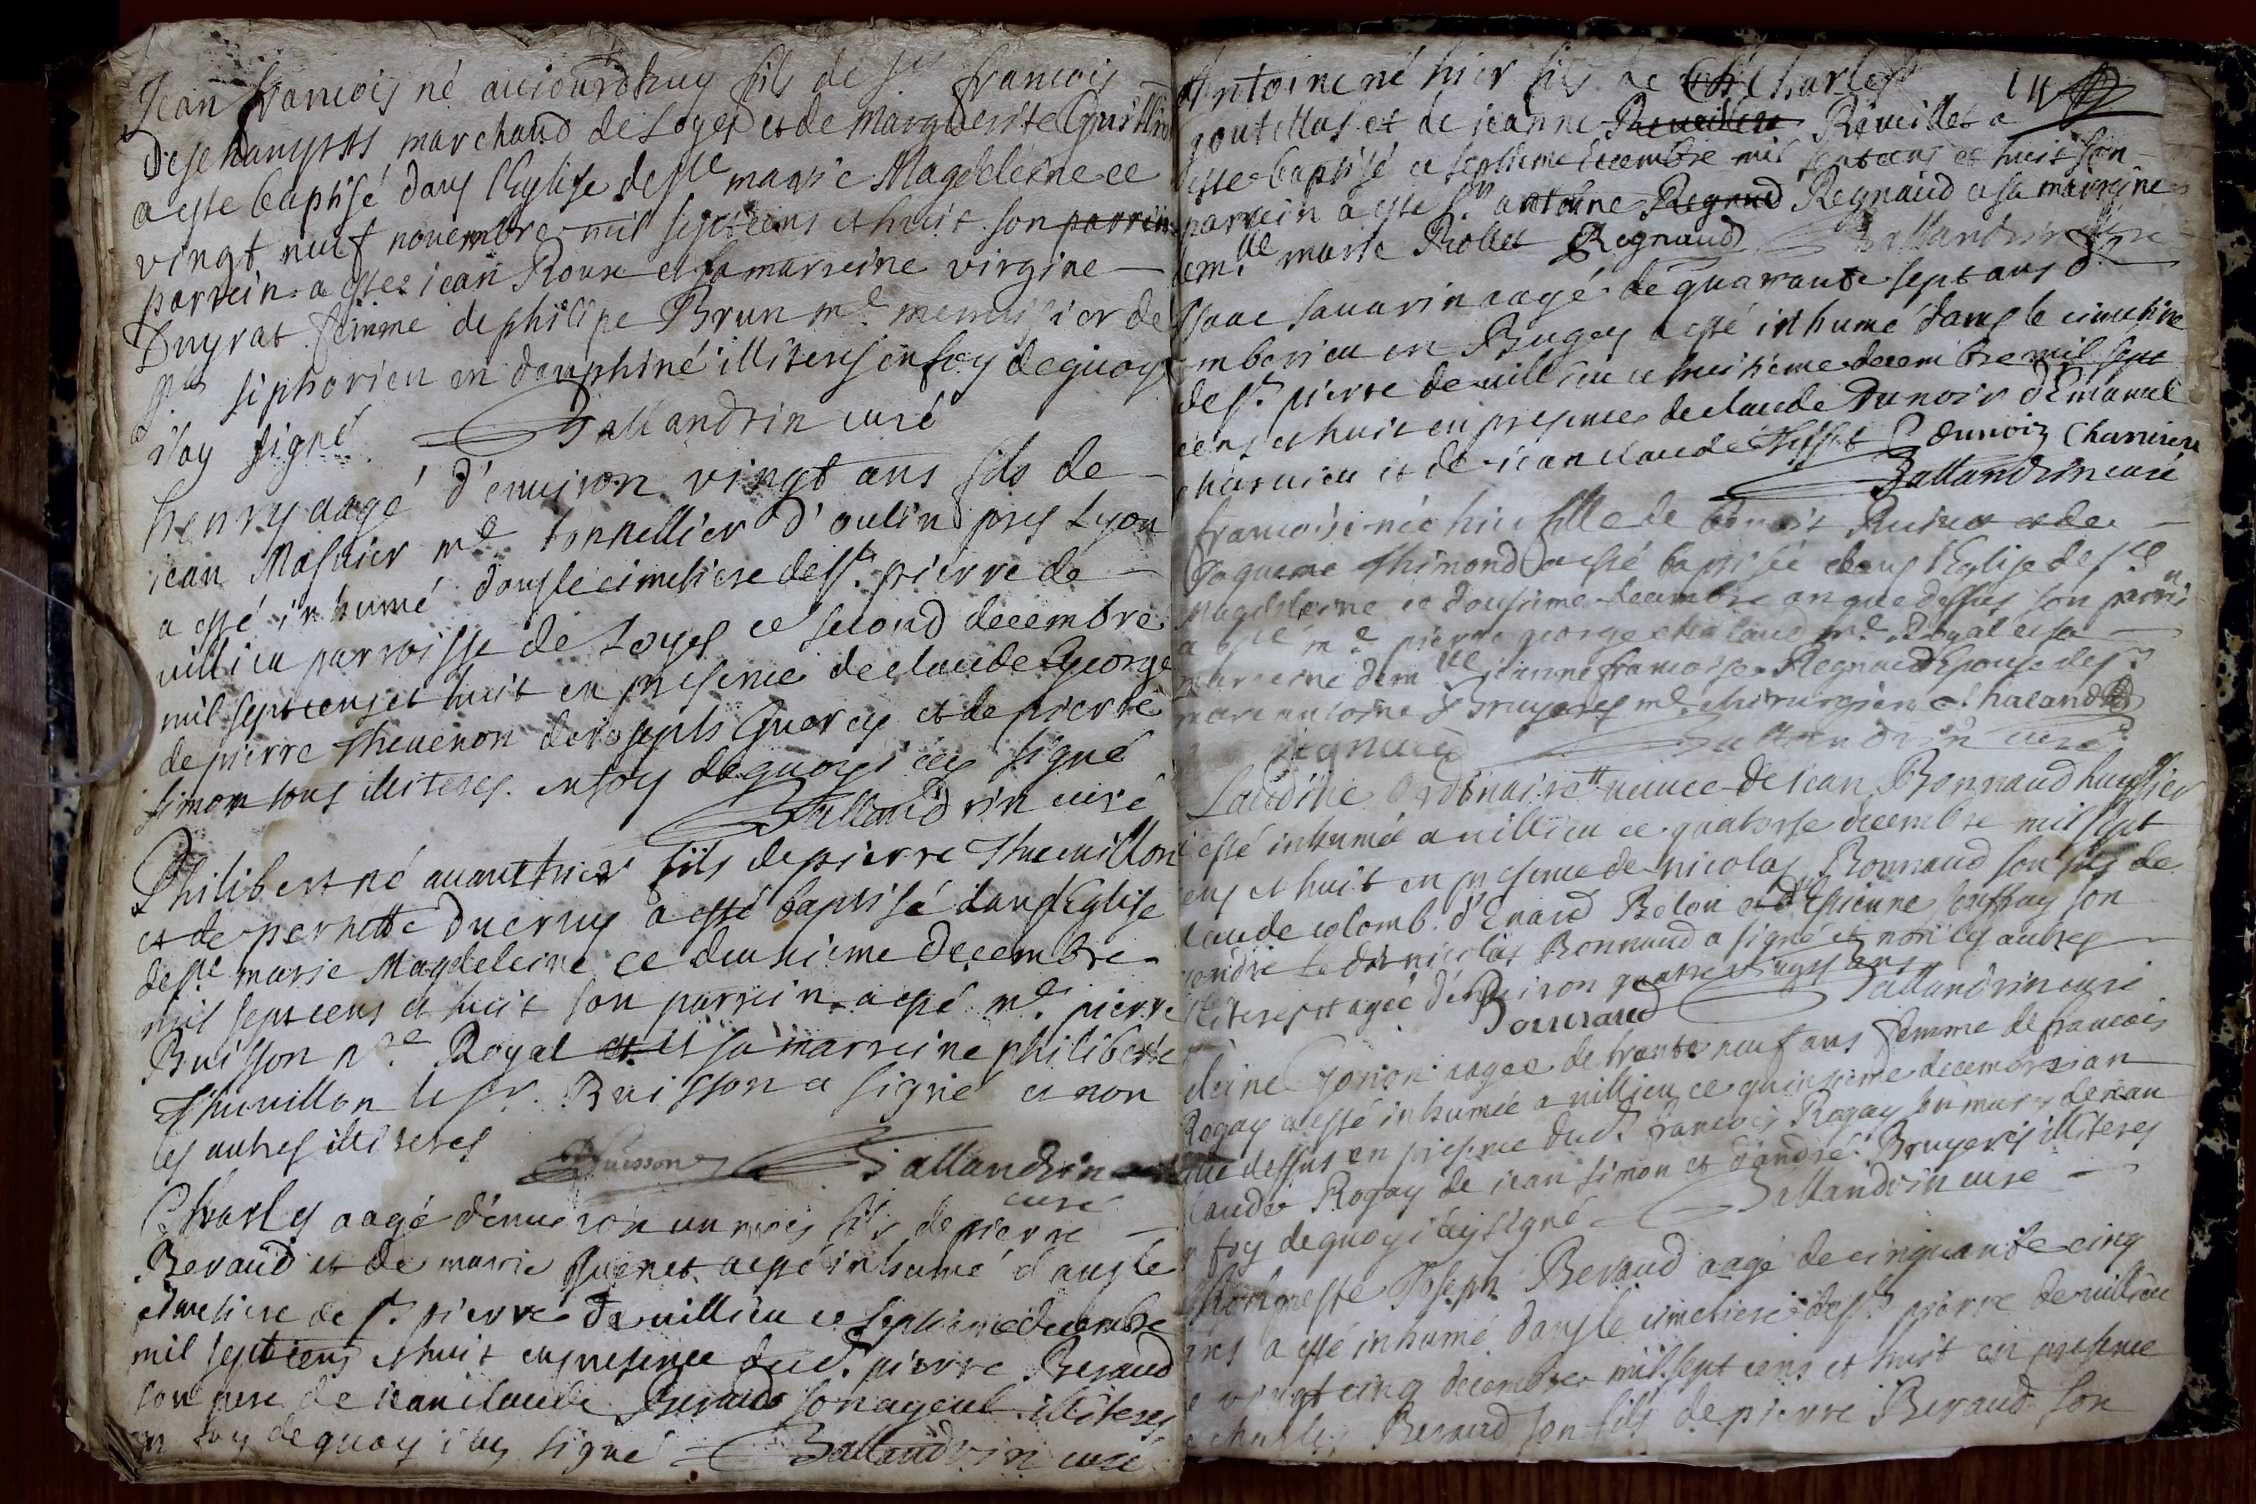 Jean francois né aujourdhuy fils de sr francois
marchand de Loyes et de Marguerite Guillin
a este baptisé dans l'Eglise de ste marie Magdeleine ce
vingt neuf novembre mil sept cens et huit son parrein
parrein a estes jean Roux et sa marreine virgine
Duyrat femme de philipe Brun me menusier de
siphorien en dauphiné illiteres en foy de quoy
j'ay signé Ballandrin curé
henry aagé d'environ vingt ans fils de
jean Masuier me tonnellier d'oulin pres Lyon
a esté inhumé dans le cimetiere de st. pierre de
villieu parroisse de Loyes ce second decembre
mil sept cens et huit en presence de claude George
de pierre Thevenon de joseph Guerey et de pierre
simon tous illiteres. en foy de quoy j'ay signé
Ballandrin curé
Philibert né avant hier fils de pierre Thuvillon
et de pernette ducruy a esté baptisé dans l'Eglise
de ste marie Magdeleine ce deuxieme decembre
mil sept cens et huit son parrein a esté me. pierre
Buisson nre Royal et et sa marreine philiberte
Thuvillon le sr. Buisson a signé et non
les autres illiteres
Buisson Ballandrin
curé
Charles aagé d'environ un mois fils de pierre
Beraud et de marie a esté inhumé dans le
cimetiere de st. pierre de villieu ce septieme decembre
mil sept cens et huit en presence dud. pierre Beraud
son pere de jean claude Beraud son ayeul illiteres
en foy de quoy j'ay signé Ballandrin curé
Antoine né hier fils de Charles
goutellas et de jeanne Reveillet a
este baptisé ce septieme decembre mil sept cens et huit son
parrein a esté sr. antoine Regnaud Regnaud et sa marreine
dem.lle marie Rollet Regnaud Ballandrin
Isaac Savarin aagé de quarante sept ans d
mberieu en Bugey a esté inhumé dans le cimetiere
de st. pierre de villieu ce huitieme decembre mil sept
cens et huit en presence de claude Dunoir d'Emanuel
charvieu et de jean claude C dunoir Charvieu
Ballandrin curé
francoise née hier fille de benoit et de
Jaqueme Thimond a esté baptisée dans l'Eglise de ste
Magdeleine ce dousieme decembre an que dessus son parrin
a esté me pierre george chaland nre Royal et sa
marreine demlle jeanne francoise Regnaud Epouse de sr
marc antoine Bruyeres me chirurgien Chaland
Regnaud Ballandrin curé
Laudine Ordinaire tt veuve de jean Bonnaud huissier
esté inhumée a villieu ce quatorse decembre mil sept
cens et huit en presence de nicolas Bonnaud son fils de
laude colomb. d'Enard Belon et d'Estienne son
gendre Le dit nicolas Bonnaud a signé et non les autres
illiteres tt agée d'environ quatre vingt ans
Bonnaud Ballandrin curé
aagée de trante neuf ans femme de francois
Rogay a esté inhumée a villieu ce quinsieme decembre an
que dessus en presence dud. francois Rogay son mary de jean
claude Rogay de jean simon et d'andré Bruyeres illiteres
foy de quoy j'ay signé Ballandrin curé
honneste Joseph Beraud aagé de cinquante cinq
ans a esté inhumé dans le cimetiere de st. pierre de villieu
vingt cinq decembre mil sept cens et huit en presence
charles Beraud son fils de pierre Beraud son